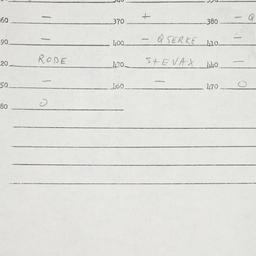 60 — 370 + 380 — Q
90 — 400 — QSERKE 410 —
20 RODE 420 StEVAX 440 —
50 — 460 — 470 O
80 O